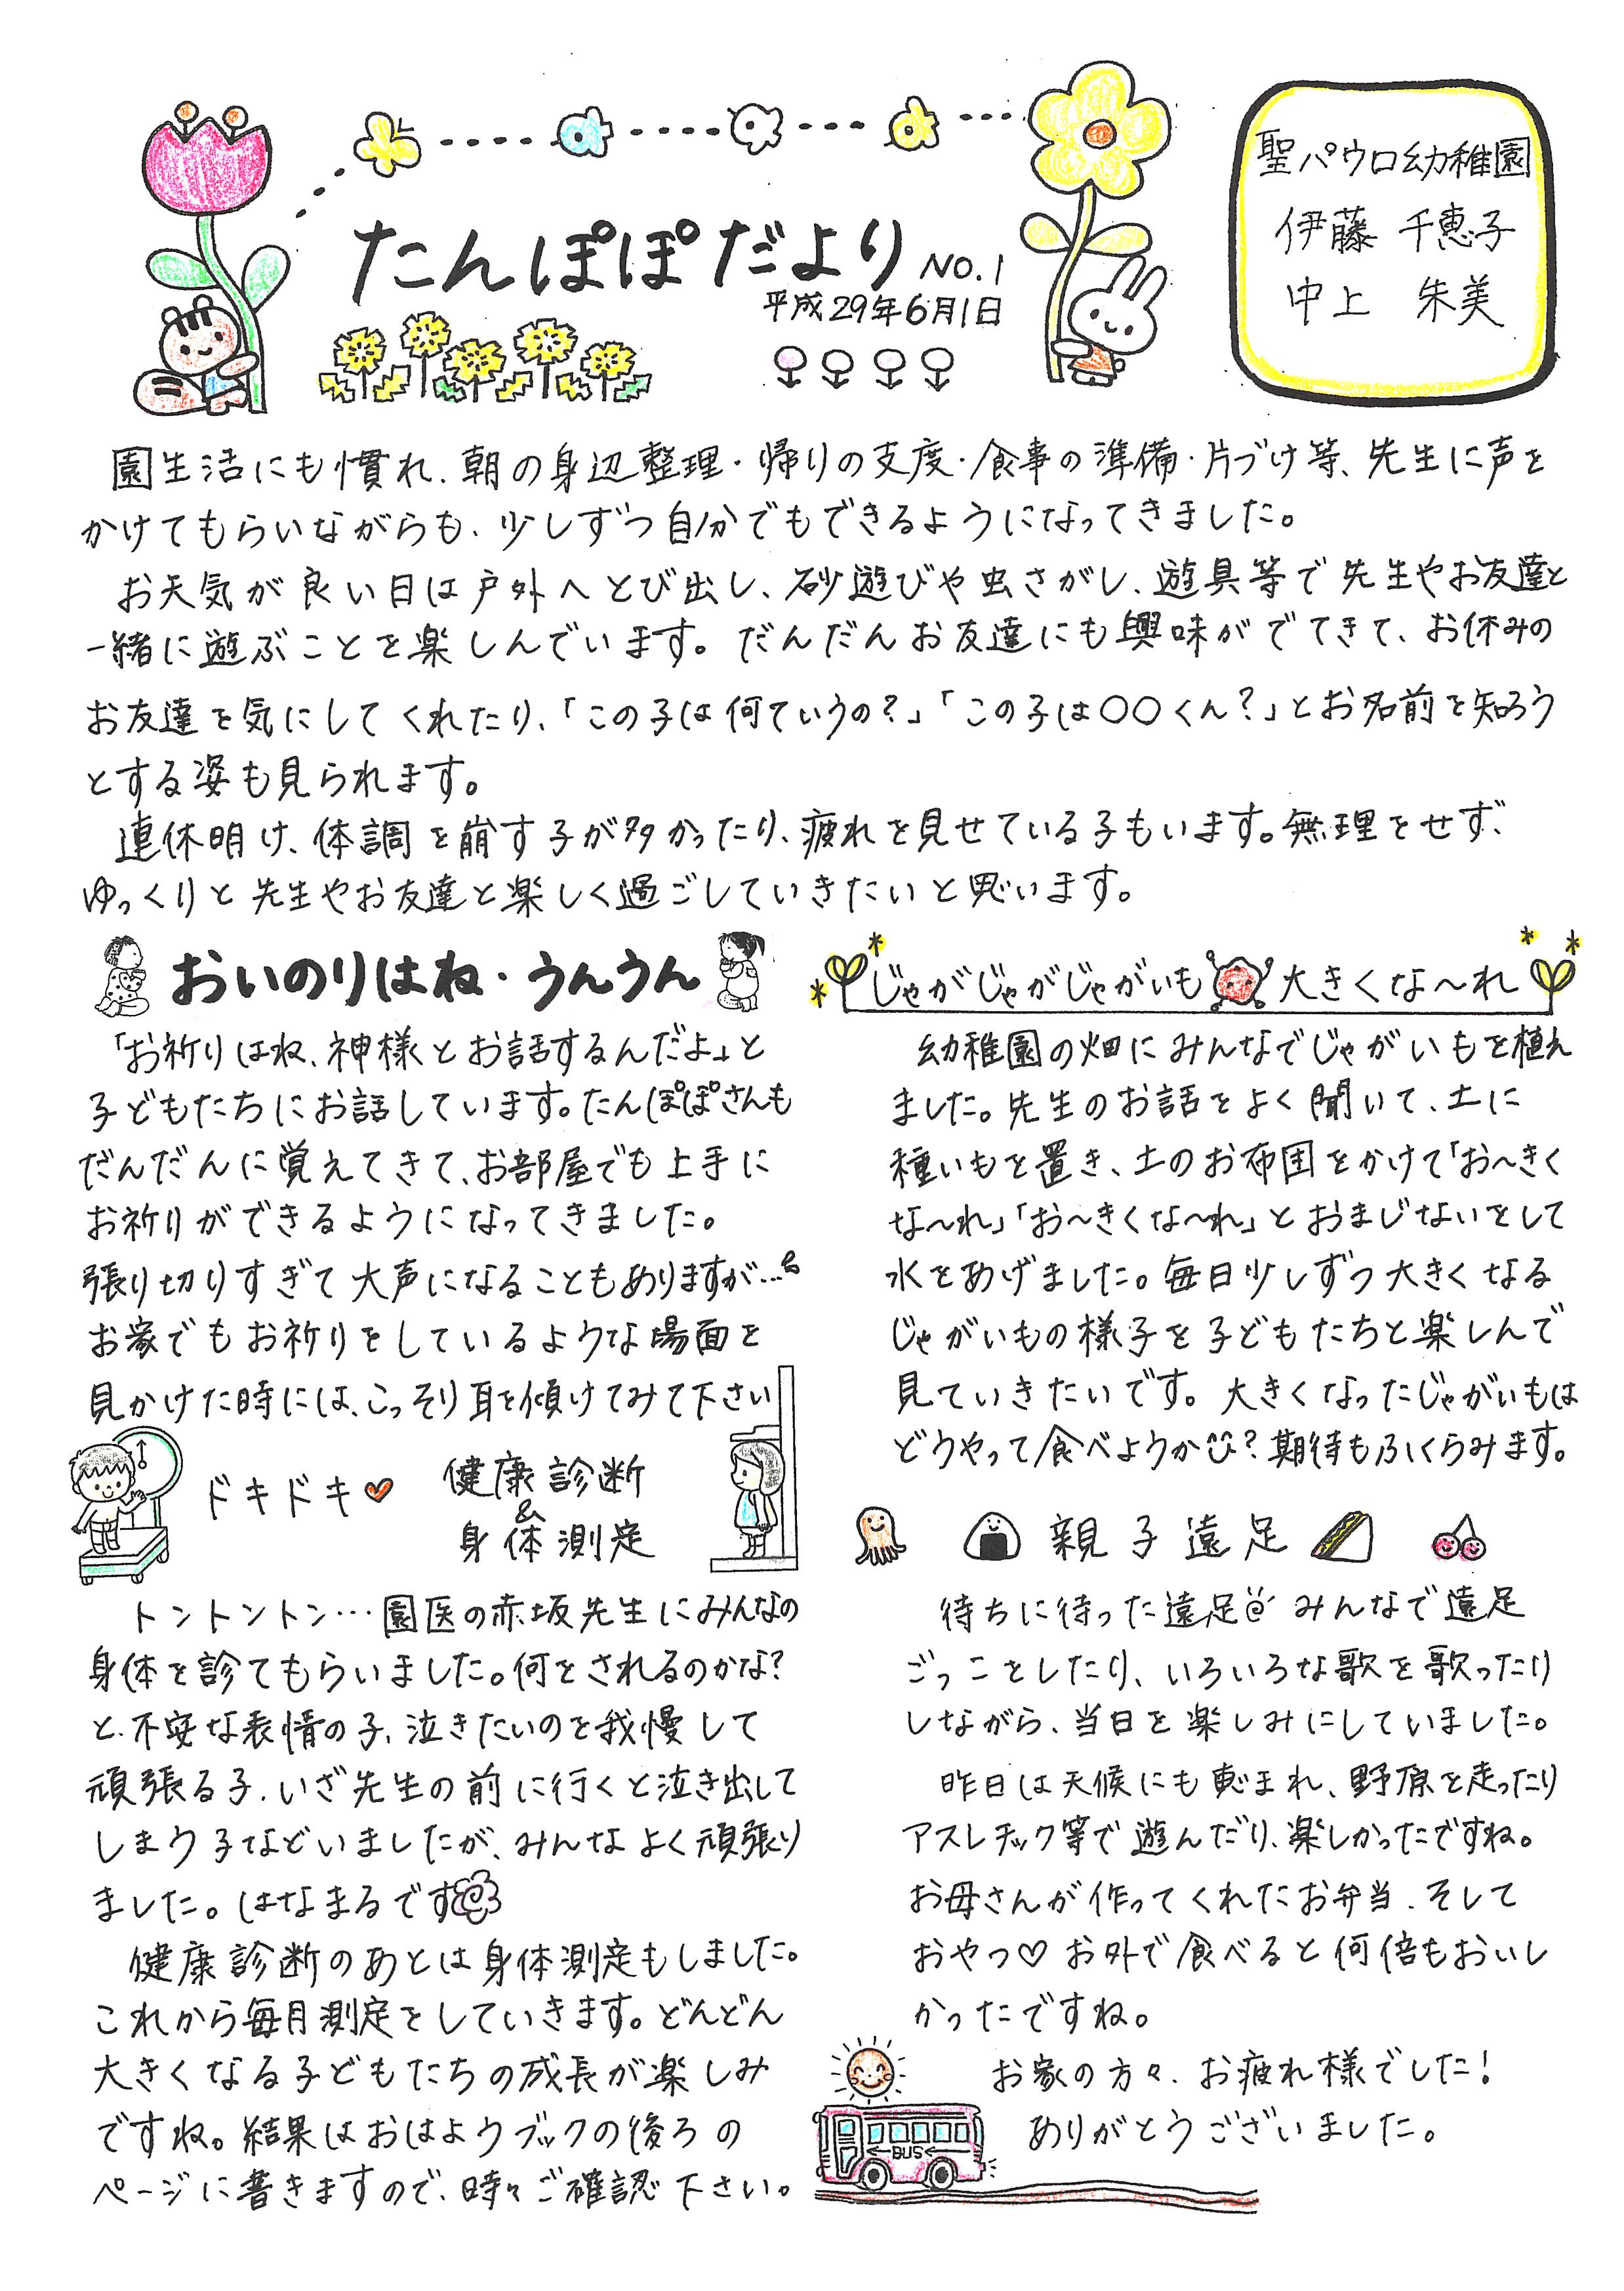 たんぽぽだより NO.1
平成29年6月1日
聖パウロ幼稚園
伊藤 千恵子
中上 朱美
園生活にも慣れ、朝の身辺整理・帰りの支度・食事の準備・片づけ等、先生に声を
かけてもらいながらも、少しずつ自分でもできるようになってきました。
お天気が良い日は戸外へとび出し、砂遊びや虫さがし、遊具等で先生やお友達と
一緒に遊ぶことを楽しんでいます。だんだんお友達にも興味がでてきて、お休みの
お友達を気にしてくれたり、「この子は何ていうの?」「この子は〇〇くん?」とお名前を知ろう
とする姿も見られます。
連休明け、体調を崩す子が多かったり、疲れを見せている子もいます。無理をせず、
ゆっくりと先生やお友達と楽しく過ごしていきたいと思います。
おいのりはね・うんうん
「お祈りはね、神様とお話するんだよ」と
子どもたちにお話しています。たんぽぽさんも
だんだんに覚えてきて、お部屋でも上手に
お祈りができるようになってきました。
張り切りすぎて大声になることもありますが…
お家でもお祈りをしているような場面を
見かけた時には、こっそり耳を傾けてみて下さい
ドキドキ♥ 健康診断
&
身体測定
トントントン…園医の赤坂先生にみんなの
身体を診てもらいました。何をされるのかな?
と、不安な表情の子、泣きたいのを我慢して
頑張る子、いざ先生の前に行くと泣き出して
しまう子などいましたが、みんなよく頑張り
ました。はなまるです
健康診断のあとは身体測定もしました。
これから毎月測定をしていきます。どんどん
大きくなる子どもたちの成長が楽しみ
ですね。結果はおはようブックの後ろの
ページに書きますので、時々ご確認下さい。
じゃがじゃがじゃがいも 大きくな〜れ
幼稚園の畑にみんなでじゃがいもを植え
ました。先生のお話をよく聞いて、土に
種いもを置き、土のお布団をかけて「お〜きく
な〜れ」「お〜きくな〜れ」とおまじないをして
水をあげました。毎日少しずつ大きくなる
じゃがいもの様子を子どもたちと楽しんで
見ていきたいです。大きくなったじゃがいもは
どうやって食べようか?期待もふくらみます。
親子遠足
待ちに待った遠足 みんなで遠足
ごっこをしたり、いろいろな歌を歌ったり
しながら、当日を楽しみにしていました。
昨日は天候にも恵まれ、野原を走ったり
アスレチック等で遊んだり、楽しかったですね。
お母さんが作ってくれたお弁当、そして
おやつ♡お外で食べると何倍もおいし
かったですね。
お家の方々、お疲れ様でした!
ありがとうございました。
BUS